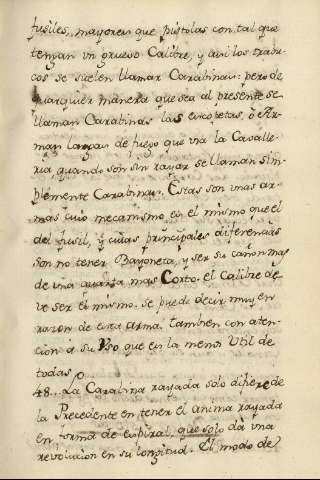 fusiles, mayores que pistolas con tal que
tengan un grueso Calibre, y asi los trabu-
cos se suelen llamar Carabinas: pero de
qualquier manera que sea al presente se
llaman Carabinas las escopetas, ò Ar-
mas largas de fuego que usa la Cavalle-
ria, quando son sin rayar se llaman sim-
plemente Carabinas. Estas son unas ar-
mas cuio mecanismo es el mismo que el
del fusil, y cuias principales diferencias
son no tener Bayoneta, y ser su cañon mas
de una quarta mas Corto. el Calibre de-
ve ser el mismo. se puede decir muy en
razon de esta arma. tambien con aten-
cion à su Uso que es la menos Util de
todas.
48... La Carabina rayada solo difiere de
la Precedente en tener el anima rayada
en forma de espiral, que solo dà una
revolucion en su longitud. El modo de